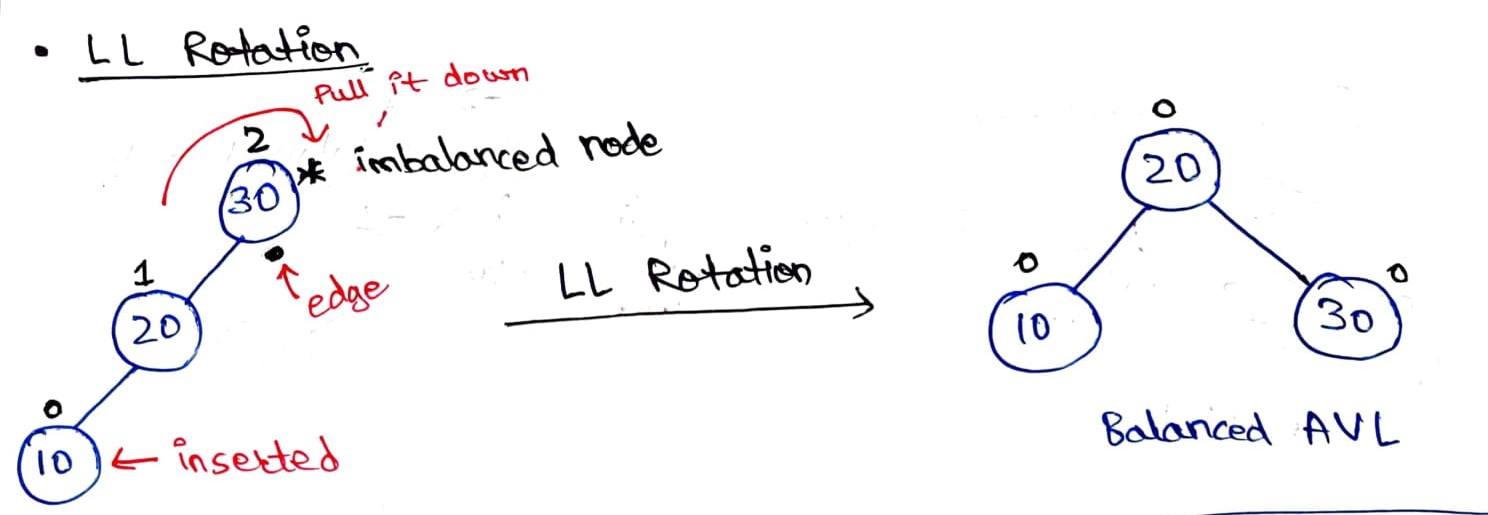 • LL Rotation
Pull it down
2
* imbalanced node
30
edge
1
20
0
10 ← inserted
LL Rotation
0
20
0
10
0
30
Balanced AVL